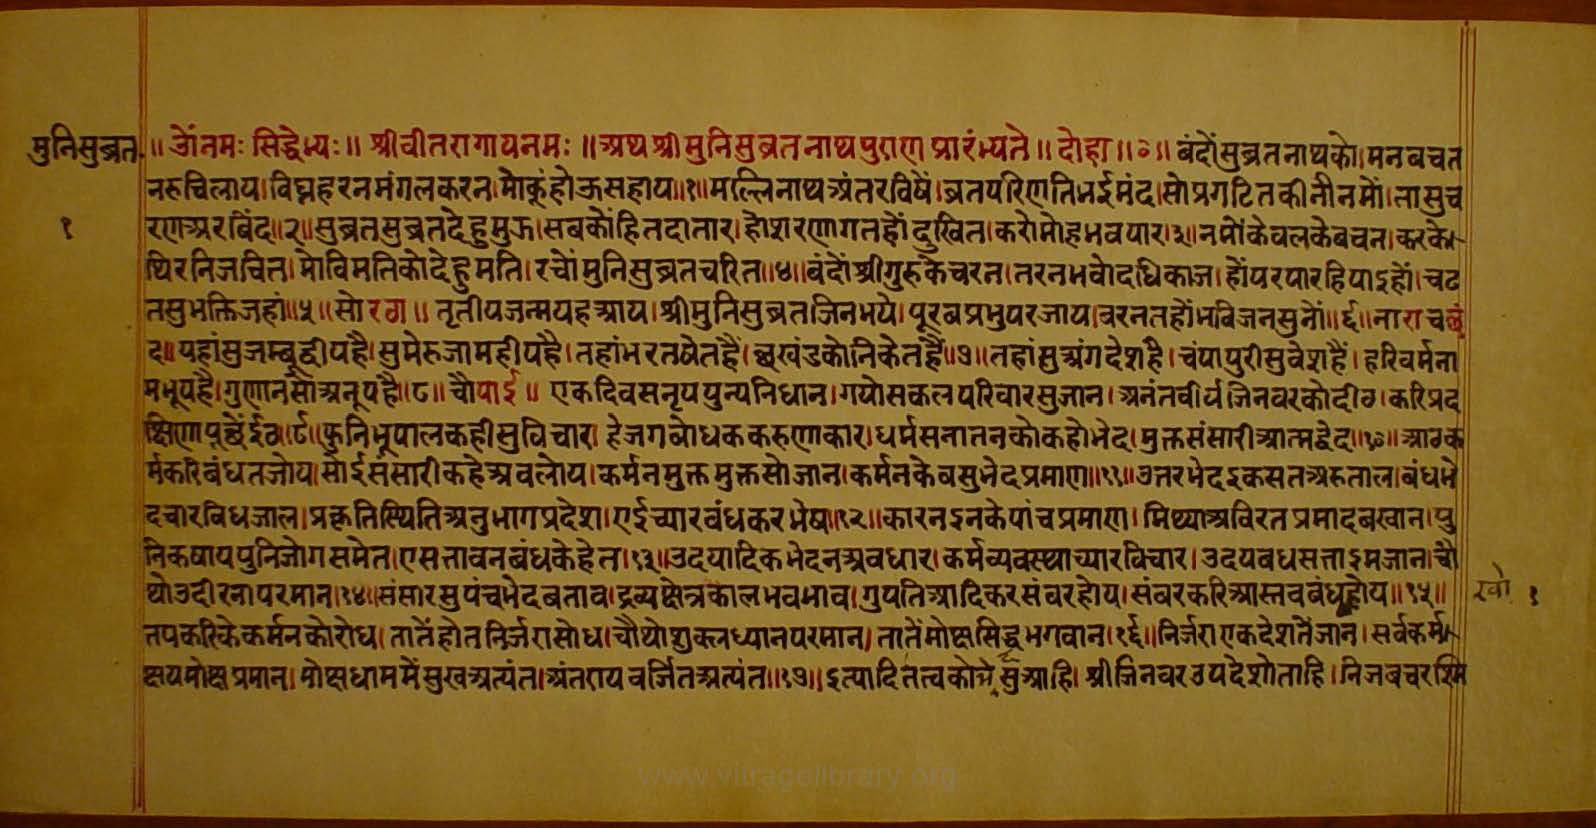 मुनिसुब्रत
॥ ॐ नमः सिद्धेभ्यः॥ श्रीवीतरागायनमः ॥ अथ श्रीमुनिसुब्रतनाथपुराण प्रारंभ्यते॥ दोहा॥०॥ बंदौंसुब्रतनाथकों।मनबचत
नरुचिलाय। विघ्नहरनमंगलकरन।मोकूंहोऊसहाय॥१॥मल्लिनाथअंतरविषैं।ब्रतपरिणतिभईमंद।सोप्रगटितकीनीनमों।तासुच
१
रणअरबिंद॥२॥सुब्रतसुब्रतदेहुमुऊ।सबकौंहितदातार।होशरणागतहौंदुखित।करोमोहभवपार।३॥नमोंकेवलकेबचन।करके
थिरनिजचित।मोविमतिकोदेहुमति।रचोंमुनिसुब्रतचरित॥४॥बंदोंश्रीगुरुकेचरन।तरनभवोदधिकाज।होंपरपारहिपाइहों।चढ
तसुभक्तिजहां॥५॥सोरठा॥तृतीयजन्मयहआय।श्रीमुनिसुब्रतजिनभये।पूरबप्रभुपरजाय।वरनतहोंभविजनसुनों॥६॥नाराचछं
द॥यहांसुजम्बूद्वीपहै।सुमेरुजामहीपहै।तहांभरतखेतहैं।छखंडकोनिकेतहैं॥७॥तहांसुअंगदेशहै।चंपापुरीसुवेशहैं।हरिवर्मना
मभूपहै।गुणानसोंअनूपहै॥८॥चौपाई॥ एकदिवसनृपपुन्यनिधान।गयोसकलपरिवारसुजान।अनंतवीर्यजिनवरकोदीठ।करिप्रद
क्षिणापूछैंईठ।९॥फुनिभूपालकहीसुविचार।हेजगबोधककरुणाकार।धर्मसनातनकोकहोभेद।मुक्तसंसारीआत्मद्वेद॥१०॥आठक
र्मकरिबंधतजोय।सोईसंसारीकहेअवलोय।कर्मनमुक्तमुक्तसोजान।कर्मनकेबसुभेदप्रमाण॥११॥उत्तरभेदइकसतअरुताल।बंधभे
दचारविधजाल।प्रकृतिस्थितिअनुभागप्रदेश।एईच्यारबंधकरभेष॥१२॥कारनइनकेपांचप्रमाण।मिथ्याअविरतप्रमादबखान।पु
निकषायपुनिजोगसमेत।एसत्तावनबंधकेहेत।१३॥उदयादिकभेदनअवधार।कर्मव्यवस्थाच्यारविचार।उदयबधसत्ताइमजान।चौ
थोउदीरनापरमान।१४॥संसारसुपंचभेदबताव।द्रव्यक्षेत्रकालभवभाव।गुपतिआदिकरसंवरहोय।संवरकरिआस्तवबंधहोय॥१५॥
१
तपकरिकेकर्मनकोरोध।तातेंहोतनिर्जरासोध।चौथोशुक्लध्यानपरमान।तातेंमोक्षसिद्धभगवान।१६॥निर्जराएकदेशतेंजान।सर्वकर्म
क्षयमोक्षप्रमान।मोक्षधाममेंसुखअत्यंत।अंतरायवर्जितअत्यंत॥१७॥इत्यादितत्वकोभेसुआहि।श्रीजिनवरउपदेशोताहि।निजबचरश्मि
www.vitragelibrary.org